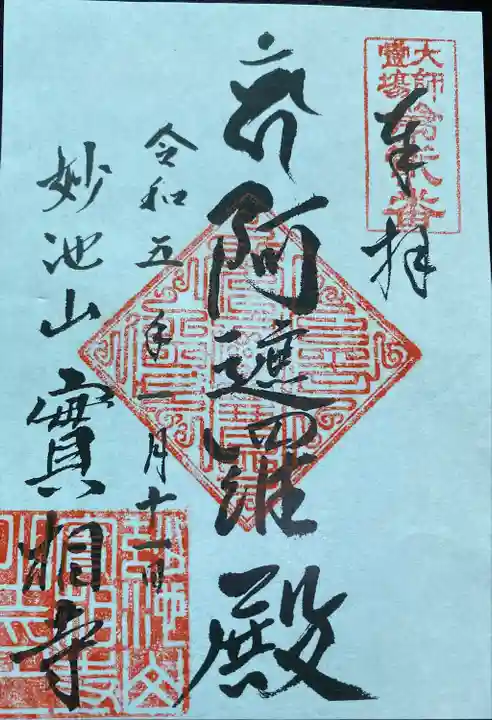 大師
靈場
番
奉拝
阿遮羅殿
令和五年一月十一日
妙池山實相寺